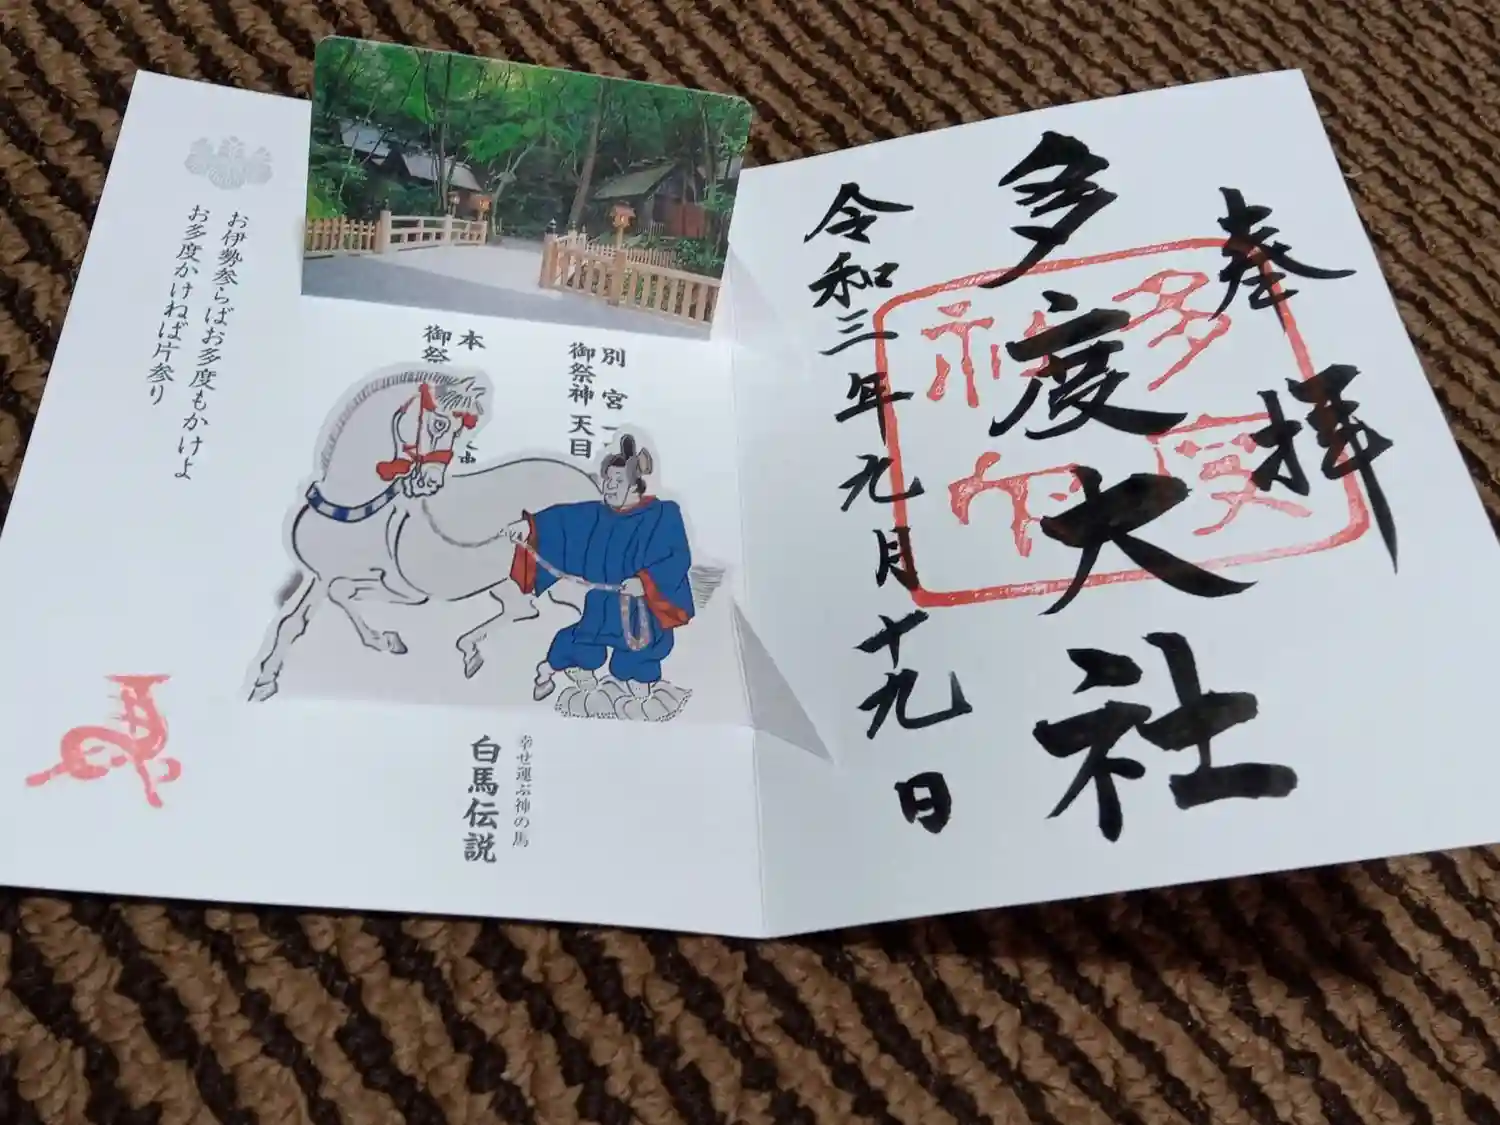 奉拝
多度大社
令和三年九月十九日
多度
神
別宮一
御祭神 天目
本
御祭
お伊勢参らばお多度もかけよ
お多度かけねば片参り
幸せ運ぶ神の馬
白馬伝説